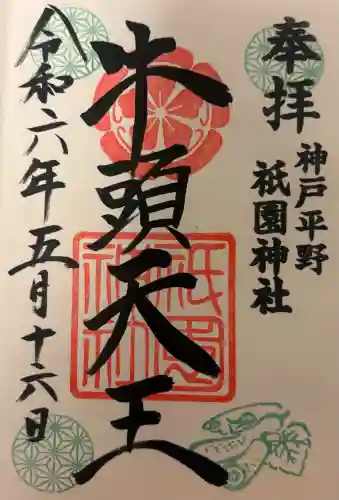 奉拝
神戸平野
祇園神社
牛頭天王
祇園
神社
令和六年五月十六日